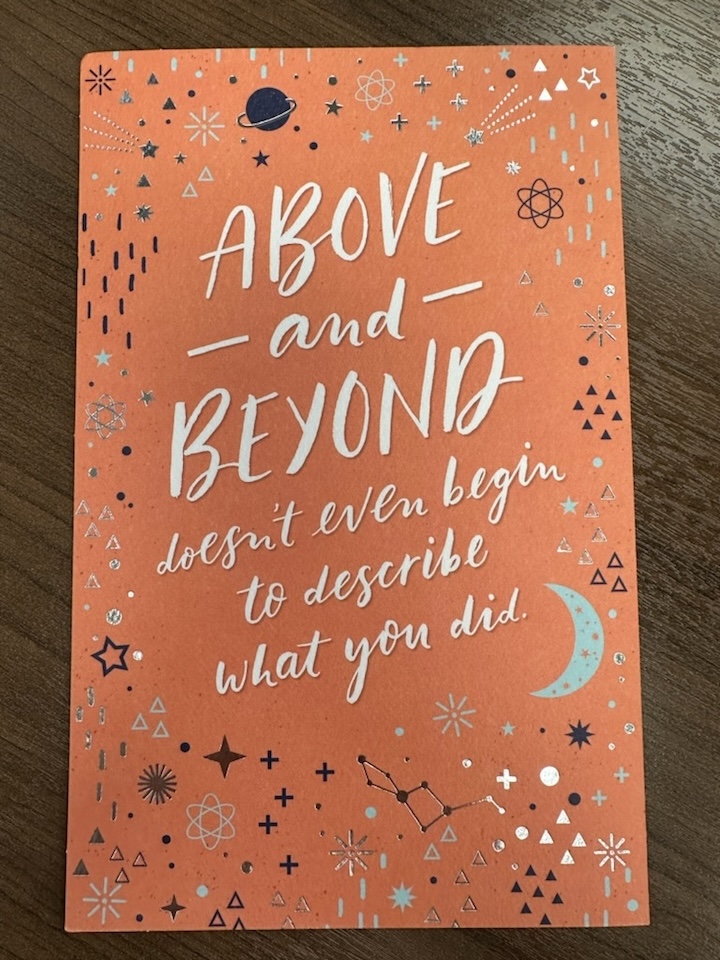 ABOVE
— and —
BEYOND
doesn't even begin
to describe
what you did.